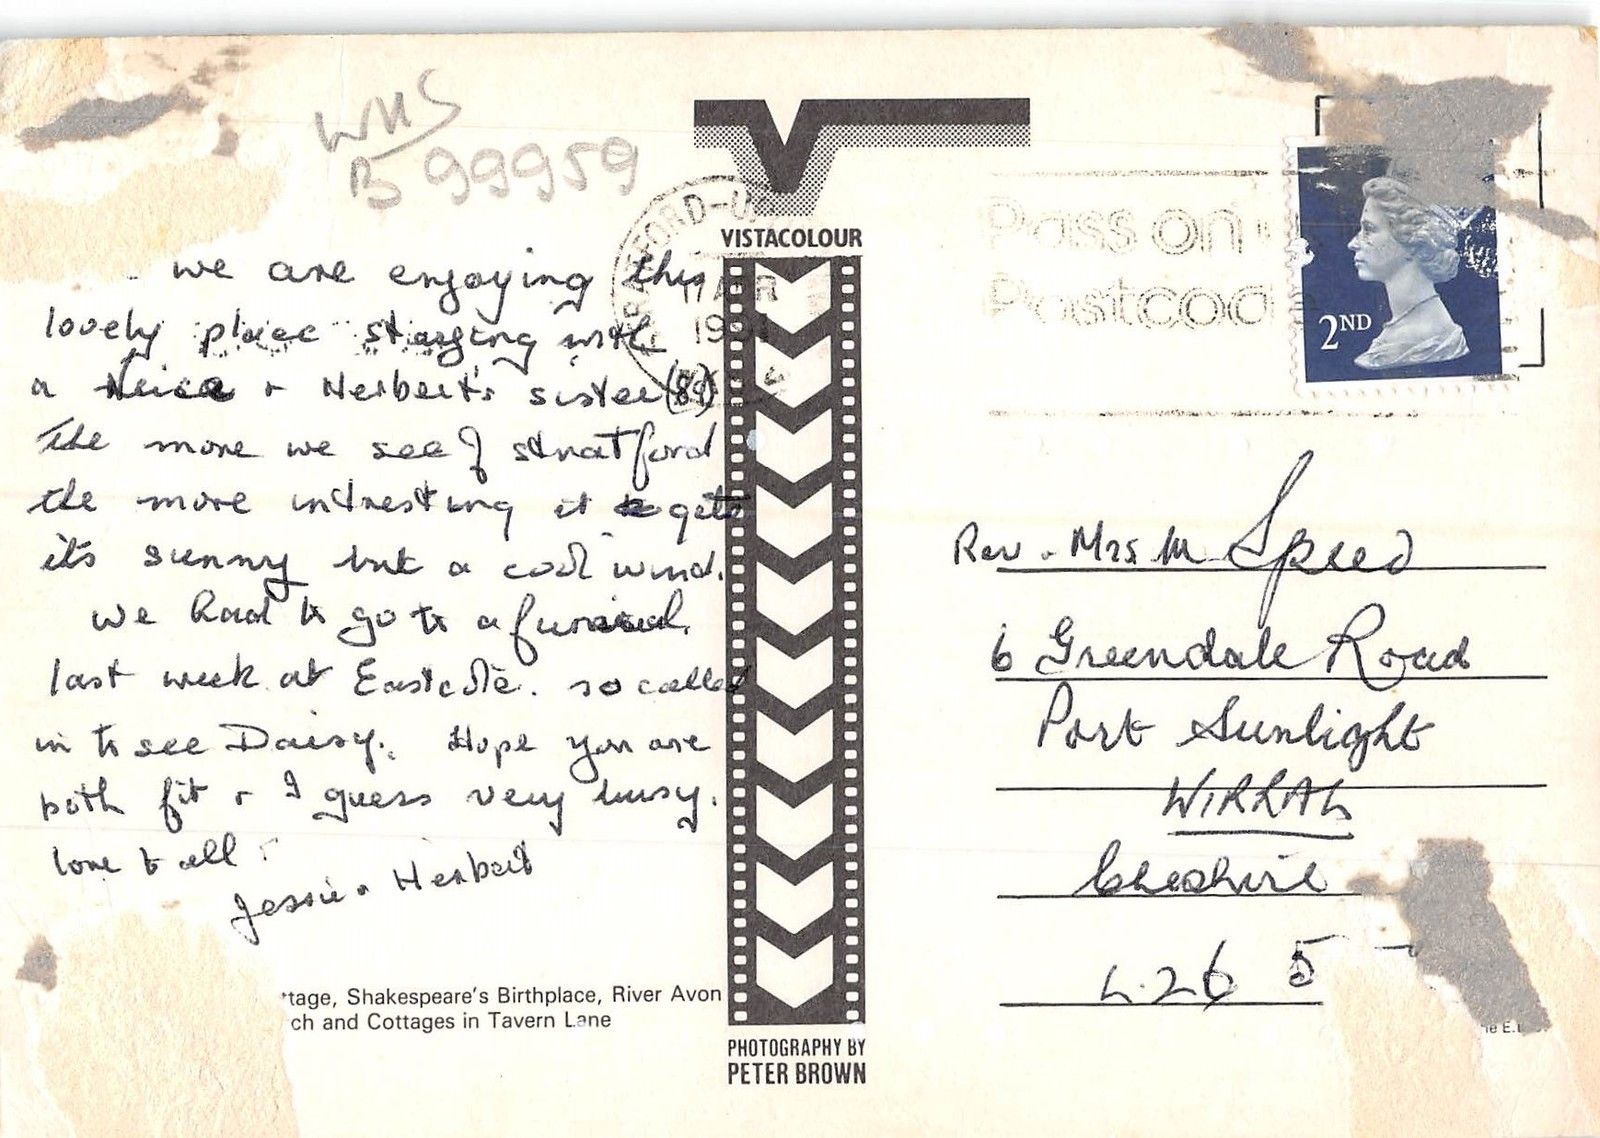 WHS
B 99959
we are enjoying this
lovely place staying with
a Neice + Herbert's sister (89)
the more we see of stratford
the more intresting it gets
its sunny but a cool wind.
we had to go to a funeral.
last week at Eastcote. so called
in to see Daisy. Hope you are
both fit + I guess very busy.
love to all
Jessie + Herbert
ttage, Shakespeare's Birthplace, River Avon
ch and Cottages in Tavern Lane
VISTACOLOUR
PHOTOGRAPHY BY
PETER BROWN
APR
Pass on
Postcod
2ND
Rev. Mrs M Speed
6 Greendale Road
Port Sunlight
WIRRAL
Cheshire
L26 5